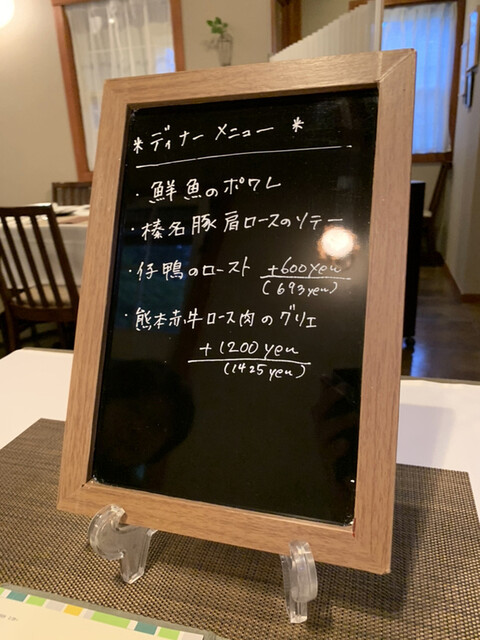 * ディナー メニュー *
・鮮魚のポワレ
・榛名豚肩ロースのソテー
・仔鴨のロースト +600yen
(693yen)
・熊本赤牛ロース肉のグリエ
+1200yen
(1425yen)